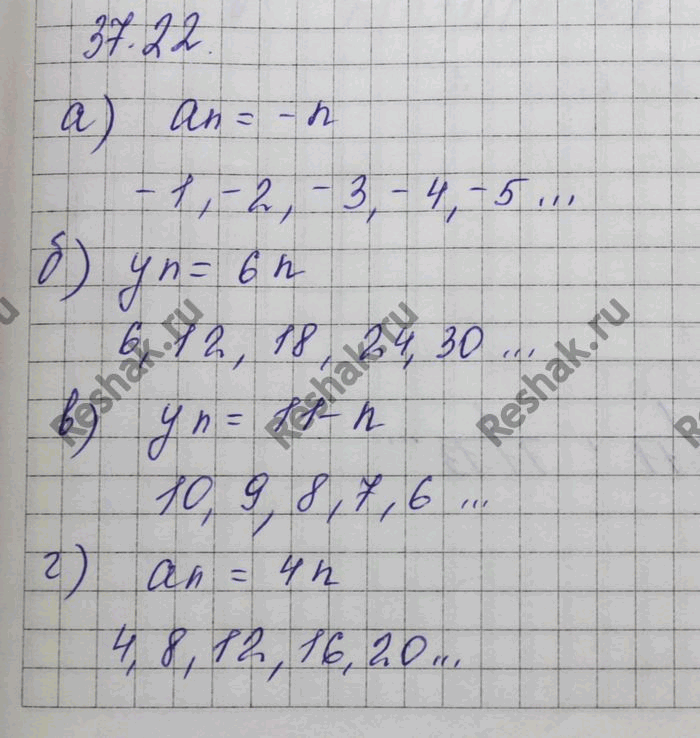 37.22.
а) an = -n
-1, -2, -3, -4, -5 ...
б) yn = 6n
6, 12, 18, 24, 30 ...
в) yn = 11-n
10, 9, 8, 7, 6 ...
г) an = 4n
4, 8, 12, 16, 20 ...
Reshak.ru
Reshak.ru
Reshak.ru